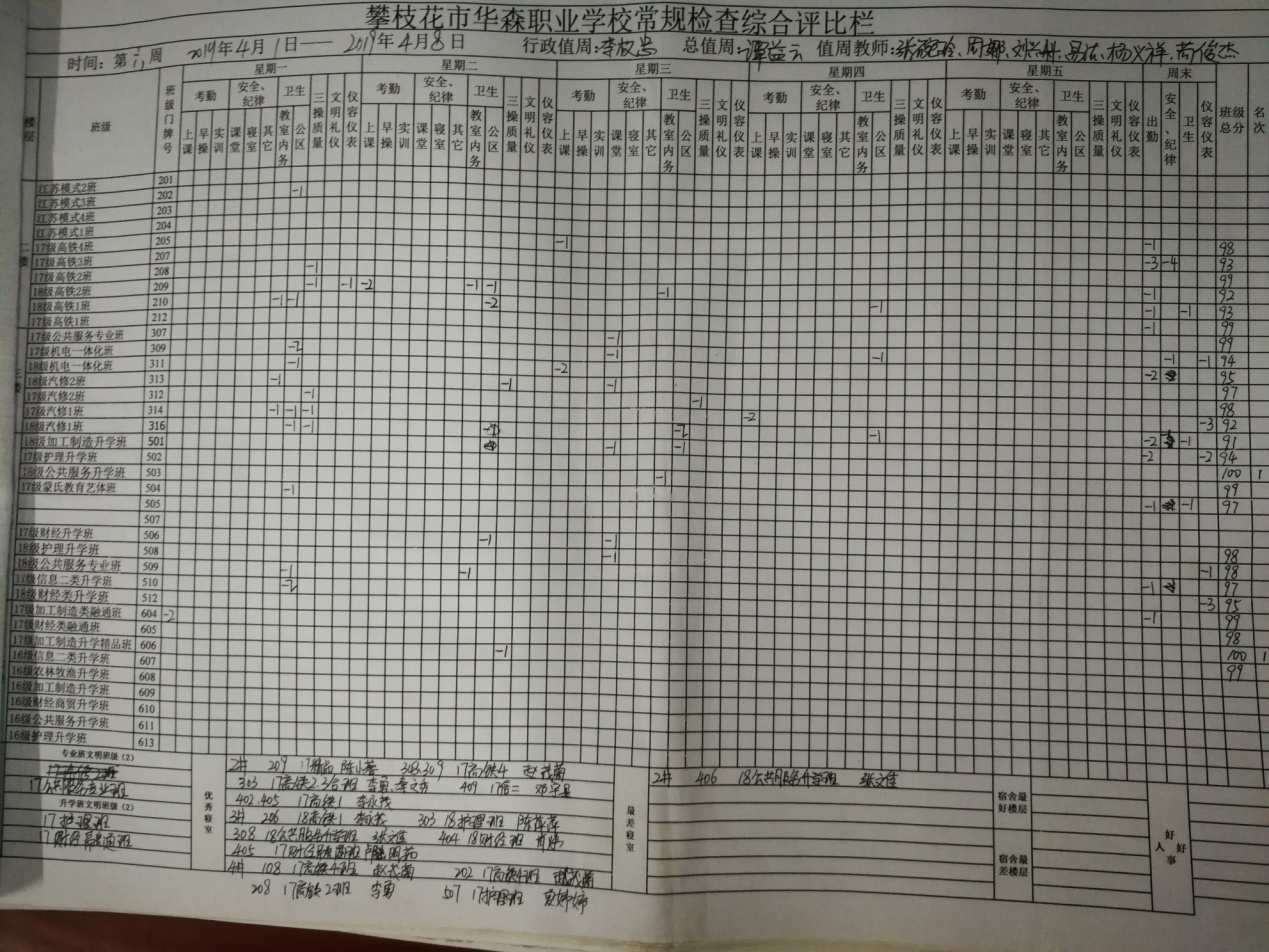 攀枝花市华森职业学校常规检查综合评比栏
时间：第 周 2019年4月1日——2019年4月8日 行政值周： 总值周：谭益云 值周教师：
楼层 班级 班级门牌号 星期一 星期二 星期三 星期四 星期五 周末 班级总分 名次
考勤 安全、纪律 卫生 三操质量 文明礼仪 仪容仪表 考勤 安全、纪律 卫生 三操质量 文明礼仪 仪容仪表 考勤 安全、纪律 卫生 三操质量 文明礼仪 仪容仪表 考勤 安全、纪律 卫生 三操质量 文明礼仪 仪容仪表 考勤 安全、纪律 卫生 三操质量 文明礼仪 仪容仪表 出勤 安全、纪律 卫生 仪容仪表
上课 早操 实训 课堂 寝室 其它 教室内务 公区 上课 早操 实训 课堂 寝室 其它 教室内务 公区 上课 早操 实训 课堂 寝室 其它 教室内务 公区 上课 早操 实训 课堂 寝室 其它 教室内务 公区 上课 早操 实训 课堂 寝室 其它 教室内务 公区
201
江苏模式2班 202 -1
江苏模式3班 203
江苏模式4班 204
江苏模式1班 205 -1
17级高铁4班 207 -1 98
17级高铁3班 208 -1 -3 -4 93
17级高铁2班 209 -1 -1 -2 -1 -1 -1 99
18级高铁2班 210 -1 -1 -2 -1 -1 92
18级高铁1班 212 -1 -1 93
17级高铁1班 307 -1 -1 99
17级公共服务专业班 309 -2 -1 99
17级机电一体化班 311 -1 -2 -1 -1 -1 94
18级机电一体化班 313 -1 -1 -1 -2 95
18级汽修2班 312 -1 -1 97
17级汽修2班 314 -1 -1 -1 -2 98
17级汽修1班 316 -1 -1 -3 92
18级汽修1班 501 -1 -1 -1 -2 -1 91
18级加工制造升学班 502 -2 -2 94
17级护理升学班 503 -1 100 1
18级公共服务升学班 504 -1 99
17级蒙氏教育艺体班 505 -1 -1 97
507
506 -1 -1
17级财经升学班 508 -1 98
18级护理升学班 509 -1 -1 -1 98
18级公共服务专业班 510 -2 -1 97
17级信息二类升学班 512 -3 95
18级财经类升学班 604 -2 -1 99
17级加工制造类融通班 605 98
17级财经类融通班 606 -1 100 1
17级加工制造升学精品班 607 99
16级信息二类升学班 608
16级农林牧渔升学班 609
16级加工制造升学班 610
16级财经商贸升学班 611
16级公共服务升学班 613
16级护理升学班
专业班文明班级（2）
17公共服务专业班
升学班文明班级（2）
17护理班
17财经融通班
优秀寝室
2# 209 17精品 308.309 17高铁4
303 17高铁2.3合班 李勇 409 17信二
402.405 17高铁1 李永茂
3# 206 18高铁1 李永茂 303 18护理班 陈萍萍
308 18公共服务升学班 张文佳 404 18财经班
405 17财经融通班
4# 108 17高铁4班 202 17高铁4班
208 17高铁2班 李勇 507 17护理班
最差寝室
2# 406 18公共服务升学班 张文佳
宿舍最好楼层
宿舍最差楼层
好人好事